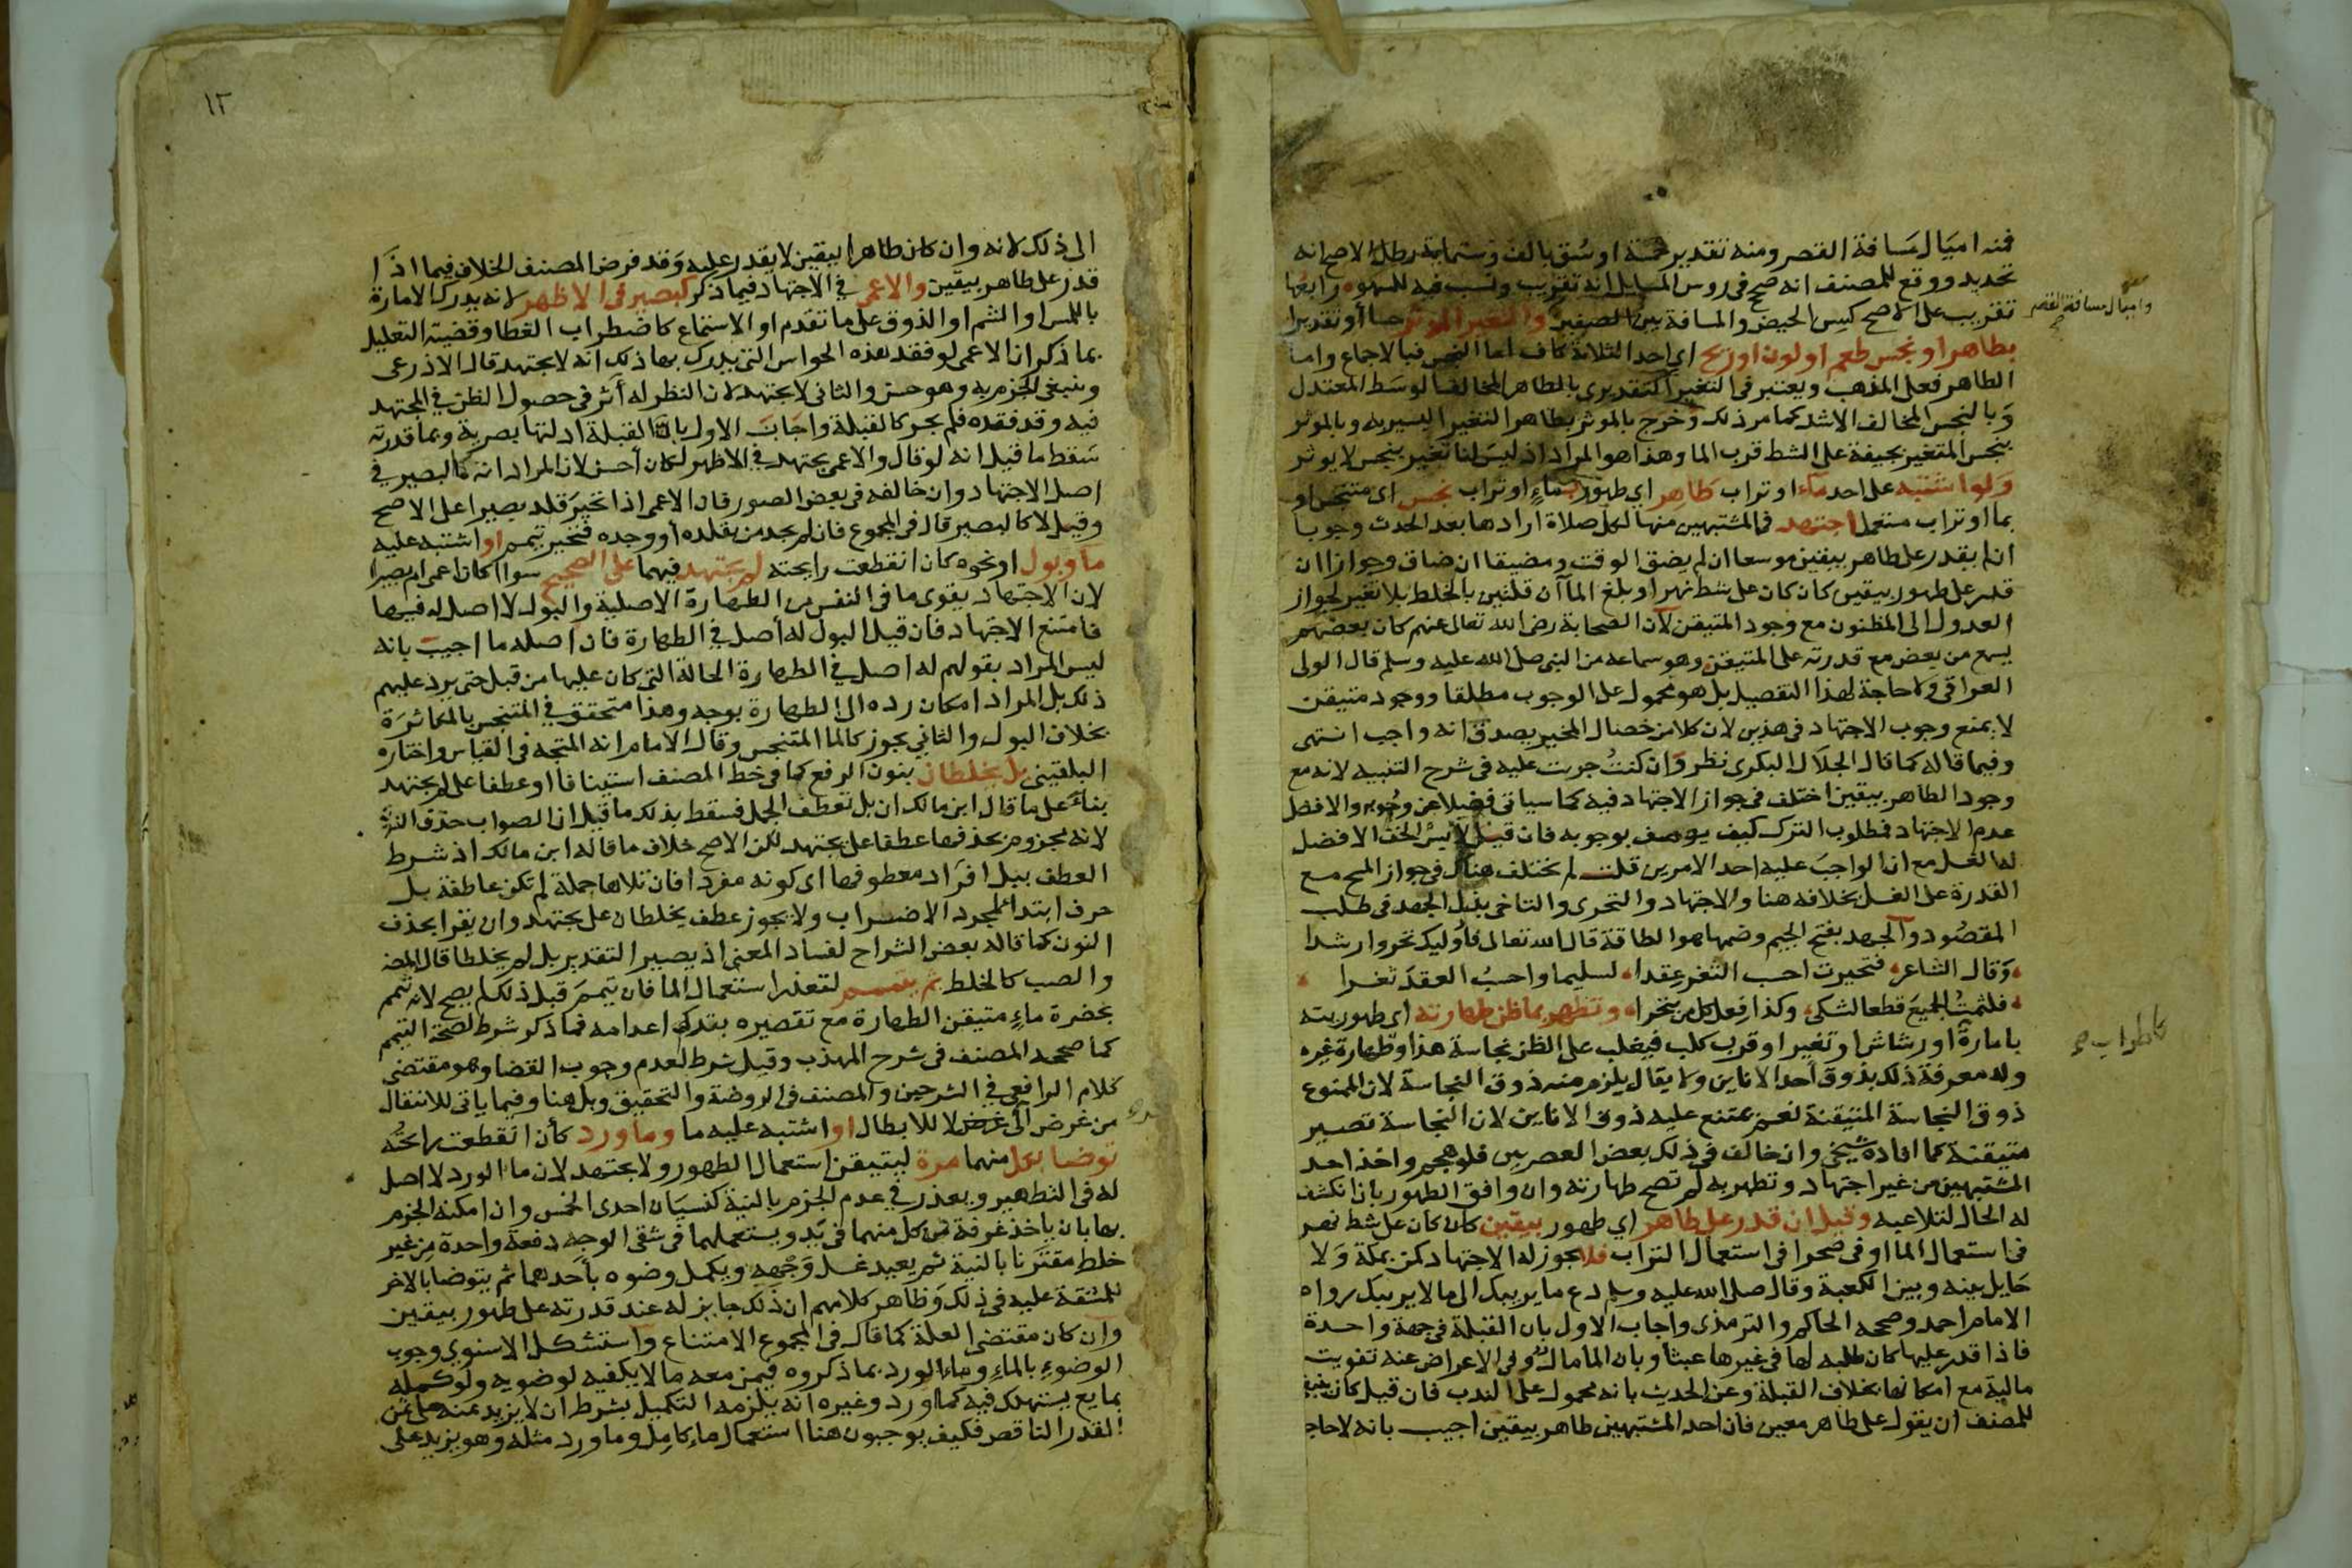 فمنه اميال مسافة القصر ومنه تقدير خمسة اوسق بالف وستماية رطل الاصح انه
تحديد ووقع للمصنف انه صحح في روس المسايل انه تقريب ونسب فيه للسهو رابعها
تقريب على الاصح كسن الحيض والمسافة بين الصفين والتغير الموثر حسا أو تقديرا
واميال مسافة القصر
بطاهر او نجس طعم او لون او ريح اي احد الثلاثة كاف اما النجس فبالاجماع واما
الطاهر فعلى المذهب ويعتبر في التغير التقديري بالطاهر المخالف الوسط المعتدل
وبالنجس المخالف الاشد كما مر ذلك وخرج بالموثر بطاهر التغير اليسير به وبالموثر
بنجس المتغير بجيفة على الشط قرب الما وهذا هو المراد اذ ليس لنا تغير بنجس لا يوثر
ولو اشتبه على احد ماء او تراب طاهر اي طهور بماء او تراب نجس اى متنجس او
بما او تراب مستعمل اجتهد في المشتبهين منها لكل صلاة ارادها بعد الحدث وجوبا
ان لم يقدر على طاهر بيقين موسعا ان لم يضق الوقت ومضيقا ان ضاق وجوازا ان
قدر على طهور بيقين كان كان على شط نهر او بلغ الماآن قلتين بالخلط بلا تغير لجواز
العدول الى المظنون مع وجود المتيقن لان الصحابة رضى الله تعالى عنهم كان بعضهم
يسمع من بعض مع قدرته على المتيقن وهو سماعه من النبي صلى الله عليه وسلم قال الولى
العراقي ولا حاجة لهذا التفصيل بل هو محمول على الوجوب مطلقا ووجود متيقن
لا يمنع وجوب الاجتهاد في هذين لان كلا من خصال المخير يصدق انه واجب انتهى
وفيما قاله كما قال الجلال البكرى نظر وان كنت جريت عليه في شرح التنبيه لانه مع
وجود الطاهر بيقين اختلف في جواز الاجتهاد فيه كما سياتى فضلا عن وجوبه والافضل
عدم الاجتهاد فمطلوب الترك كيف يوصف بوجوبه فان قيل لابس الخف الافضل
له الغسل مع ان الواجب عليه احد الامرين قلت لم يختلف هناك في جواز المسح مع
القدرة على الغسل بخلافه هنا والاجتهاد والتحرى والتاخى بذل الجهد في طلب
المقصود والجهد بفتح الجيم وضمها هو الطاقة قال الله تعالى فاوليك تحروا رشدا
وقال الشاعر فتحيرت احسب الثغر عقدا لسليما واحسب العقد ثغرا
فلثمت الجميع قطعا لشكي وكذا فعل كل من يتحرا وتطهر بما ظن طهارته اي طهوريته
بامارة او رشاش او تغير او قرب كلب فيغلب على الظن نجاسة هذا وطهارة غيره
كاضطراب
وله معرفة ذلك بذوق احد الاناين ولا يقال يلزم منه ذوق النجاسة لان الممنوع
ذوق النجاسة المتيقنة نعم يمتنع عليه ذوق الاناين لان النجاسة تصير
متيقنة كما افاده شيخي وان خالف في ذلك بعض العصريين فلو هجم واخذ احد
المشتبهين من غير اجتهاد وتطهر به لم تصح طهارته وان وافق الطهور بان انكشف
له الحال لتلاعبه وقيل ان قدر على طاهر اي طهور بيقين كان كان على شط نهر
في استعمال الما او في صحرا في استعمال التراب فلا يجوز له الاجتهاد كمن بمكة ولا
حايل بينه وبين الكعبة وقال صلى الله عليه وسلم دع ما يريبك الى ما لا يريبك رواه
الامام احمد وصححه الحاكم والترمذى واجاب الاول بان القبلة في جهة واحدة
فاذا قدر عليها كان طلبه لها في غيرها عبثا وبان الما مال وفي الاعراض عنه تفويت
مالية مع امكانها بخلاف القبلة وعن الحديث بانه محمول على الندب فان قيل كان ينبغي
للمصنف ان يقول على طاهر معين فان احد المشتبهين طاهر بيقين اجيب بانه لا حاجة
١٢
الى ذلك لانه وان كان طاهرا بيقين لا يقدر عليه وقد فرض المصنف الخلاف فيما اذا
قدر على طاهر بيقين والاعمى في الاجتهاد فيما ذكر كبصير في الاظهر لانه يدرك الامارة
باللمس او الشم او الذوق على ما تقدم او الاستماع كاضطراب الغطا وقضية التعليل
بما ذكر ان الاعمى لو فقد هذه الحواس التي يدرك بها ذلك انه لا يجتهد قال الاذرعى
وينبغي الجزم به وهو حسن والثاني لا يجتهد لان النظر له أثر في حصول الظن في المجتهد
فيه وقد فقده فلم يجز كالقبلة واجاب الاول بان القبلة ادلتها بصرية وبما قدرته
سقط ما قيل انه لو قال والاعمى يجتهد في الاظهر لكان أحسن لان المراد انه كالبصير في
اصل الاجتهاد وان خالفه في بعض الصور فان الاعمى اذا تحير قلد بصيرا على الاصح
وقيل لا كالبصير قال في المجموع فان لم يجد من يقلده أو وجده فتحير تيمم او اشتبه عليه
ما وبول او نحوه كان انقطعت رايحته لم يجتهد فيهما على الصحيح سوا اكان اعمى ام بصيرا
لان الاجتهاد يقوى ما في النفس من الطهارة الاصلية والبول لا اصل له فيها
فامتنع الاجتهاد فان قيل البول له أصل في الطهارة فان اصله ما اجيب بانه
ليس المراد بقولهم له اصل في الطهارة الحالة التي كان عليها من قبل حتى يرد عليهم
ذلك بل المراد امكان رده الى الطهارة بوجه وهذا متحقق في المتنجس بالمكاثرة
بخلاف البول والثاني يجوز كالما المتنجس وقال الامام انه المتجه في القياس واختاره
البلقينى بل يخلطان بنون الرفع كما في خط المصنف استينافا او عطفا على لم يجتهد
بناء على ما قال ابن مالك ان بل تعطف الجمل فسقط بذلك ما قيل ان الصواب حذف النون
لانه مجزوم بحذفها عطفا على يجتهد لكن الاصح خلاف ما قاله ابن مالك اذ شرط
العطف ببل افراد معطوفها اى كونه مفردا فان تلاها جملة لم تكن عاطفة بل
حرف ابتداء لمجرد الاضراب ولا يجوز عطف يخلطان على يجتهد وان يقرا بحذف
النون كما قاله بعض الشراح لفساد المعنى اذ يصير التقدير بل لم يخلطا قال
والصب كالخلط ثم يتيمم لتعذر استعمال الما فان تيمم قبل ذلك لم يصح لانه تيمم
بحضرة ماء متيقن الطهارة مع تقصيره بقدرته اعدامه فما ذكر شرط لصحة التيمم
كما صححه المصنف في شرح المهذب وقيل شرط لعدم وجوب القضا وهو مقتضى
كلام الرافعي في الشرحين والمصنف في الروضة والتحقيق وبل هنا وفيما ياتى للانتقال
من غرض الى غرض لا للابطال او اشتبه عليه ما وما ورد كأن انقطعت رايحته
توضا بكل منهما مرة ليتيقن استعمال الطهور ولا يجتهد لان ما الورد لا اصل
له في التطهير ويعذر في عدم الجزم بالنية كنسيان احدى الخمس وان امكنه الجزم
بها بان ياخذ غرفة من كل منهما في يد ويستعملهما في شقى الوجه دفعة واحدة من غير
خلط مقترنا بالنية ثم يعيد غسل وجهه ويكمل وضوه بأحدهما ثم يتوضا بالاخر
للمشقة عليه في ذلك وظاهر كلامهم ان ذلك جايز له عند قدرته على طهور بيقين
وان كان مقتضى العلة كما قال في المجموع الامتناع واستشكل الاسنوي وجوب
الوضوء بالماء وماء الورد بما ذكروه فيمن معه ما لا يكفيه لوضويه ولو كمله
بمايع يستهلك فيه كما ورد وغيره انه يلزمه التكميل بشرط ان لا يزيد ثمنه على ثمن
القدر الناقص فكيف يوجبون هنا استعمال ماء كامل وما ورد مثله وهو يزيد على